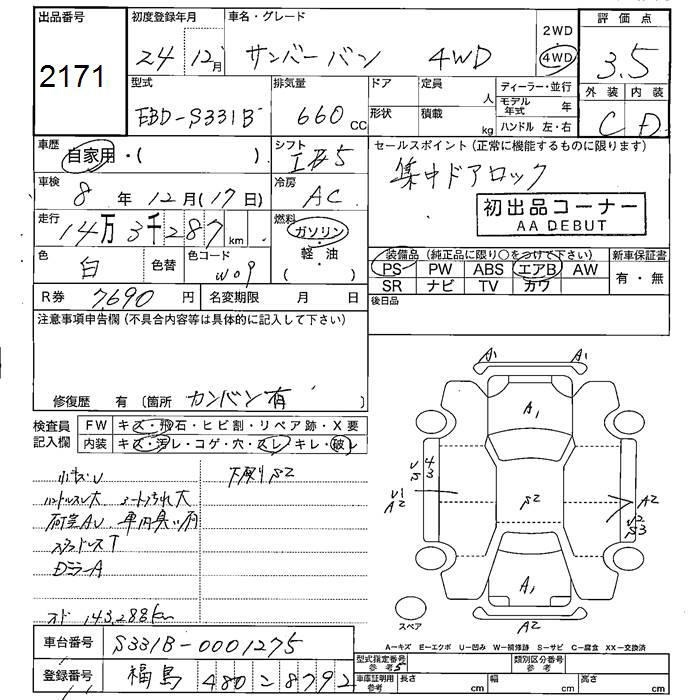 出品番号
2171
初度登録年月
24 12月
車名・グレード
サンバーバン 4WD
2WD
4WD
評価点
3.5
外装 内装
C D
型式
EBD-S331B
排気量
660 CC
ドア
形状
定員
人
積載
kg
ディーラー・並行
モデル年式 年
ハンドル 左・右
車歴
自家用・( )
シフト
車検
8年12月(17日)
冷房
AC
走行
14万3千287km
燃料
ガソリン
軽・油
( )
色
白
色替
色コード
W09
R券 7690円
名変期限 月 日
セールスポイント(正常に機能するものに限ります)
集中ドアロック
初出品コーナー
AA DEBUT
装備品(純正品に限り○をつけて下さい)
新車保証書
PS PW ABS エアB AW
有・無
SR ナビ TV カワ
後日品
注意事項申告欄(不具合内容等は具体的に記入して下さい)
修復歴 有(箇所 カンバン有 )
検査員
記入欄
FW キズ・飛石・ヒビ割・リペア跡・X要
内装 キズ・汚レ・コゲ・穴・スレ・キレ・破レ
小キズU
下廻りS2
ハンドルスレ大 シート汚れ大
荷室AU
スタッドレスT
DミラーA
オド 143,288km
A1 A1
A1
U4
S3
U1
A2
S2
A2
U2
S3
A1
A2
スペア
A-キズ E-エクボ U-凹み W-補修跡 S-サビ C-腐食 XX-交換済
車台番号 S331B-0001275
登録番号 福島 480 こ 8792
型式指定番号
参考 5
類別区分番号
参考
車庫証明用
参考
長さ cm
幅 cm
高さ cm